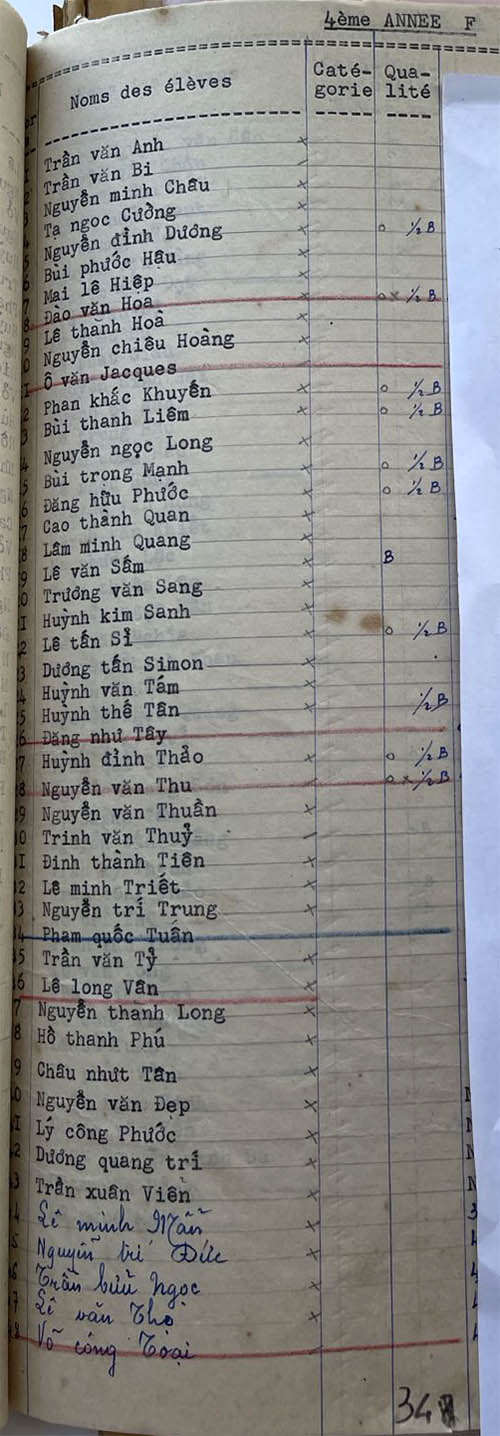 4ème ANNEE F
Noms des élèves Caté-gorie Qua-lité
Trần văn Anh x
Trần văn Bi
Nguyễn minh Châu x
Tạ ngọc Cường x
Nguyễn đình Dương x o ½ B
Bùi phước Hậu x
Mai lê Hiệp x
Đào văn Hoa x o x ½ B
Lê thành Hoà x
Nguyễn chiêu Hoàng x
Ô văn Jacques
Phan khắc Khuyến x o ½ B
Bùi thanh Liêm x o ½ B
Nguyễn ngọc Long x
Bùi trọng Mạnh x o ½ B
Đăng hữu Phước x o ½ B
Cao thành Quan x
Lâm minh Quang x
Lê văn Sấm x B
Trương văn Sang x
Huỳnh kim Sanh x
Lê tấn Sĩ x o ½ B
Dương tấn Simon x
Huỳnh văn Tám x
Huỳnh thế Tân x ½ B
Đăng như Tây
Huỳnh đình Thảo x o ½ B
Nguyễn văn Thu x o x ½ B
Nguyễn văn Thuần x
Trinh văn Thuỷ
Đinh thành Tiên x
Lê minh Triết x
Nguyễn trí Trung x
Pham quốc Tuấn
Trần văn Tỷ x
Lê long Vân x
Nguyễn thành Long x
Hồ thanh Phú x
Châu nhưt Tân x
Nguyễn văn Đẹp x
Lý công Phước x
Dương quang trí x
Trần xuân Viên x
Lê minh Mẫn x
Nguyễn trí Đức x
Trần bửu Ngọc x
Lê văn Thọ x
Võ công Toại
34